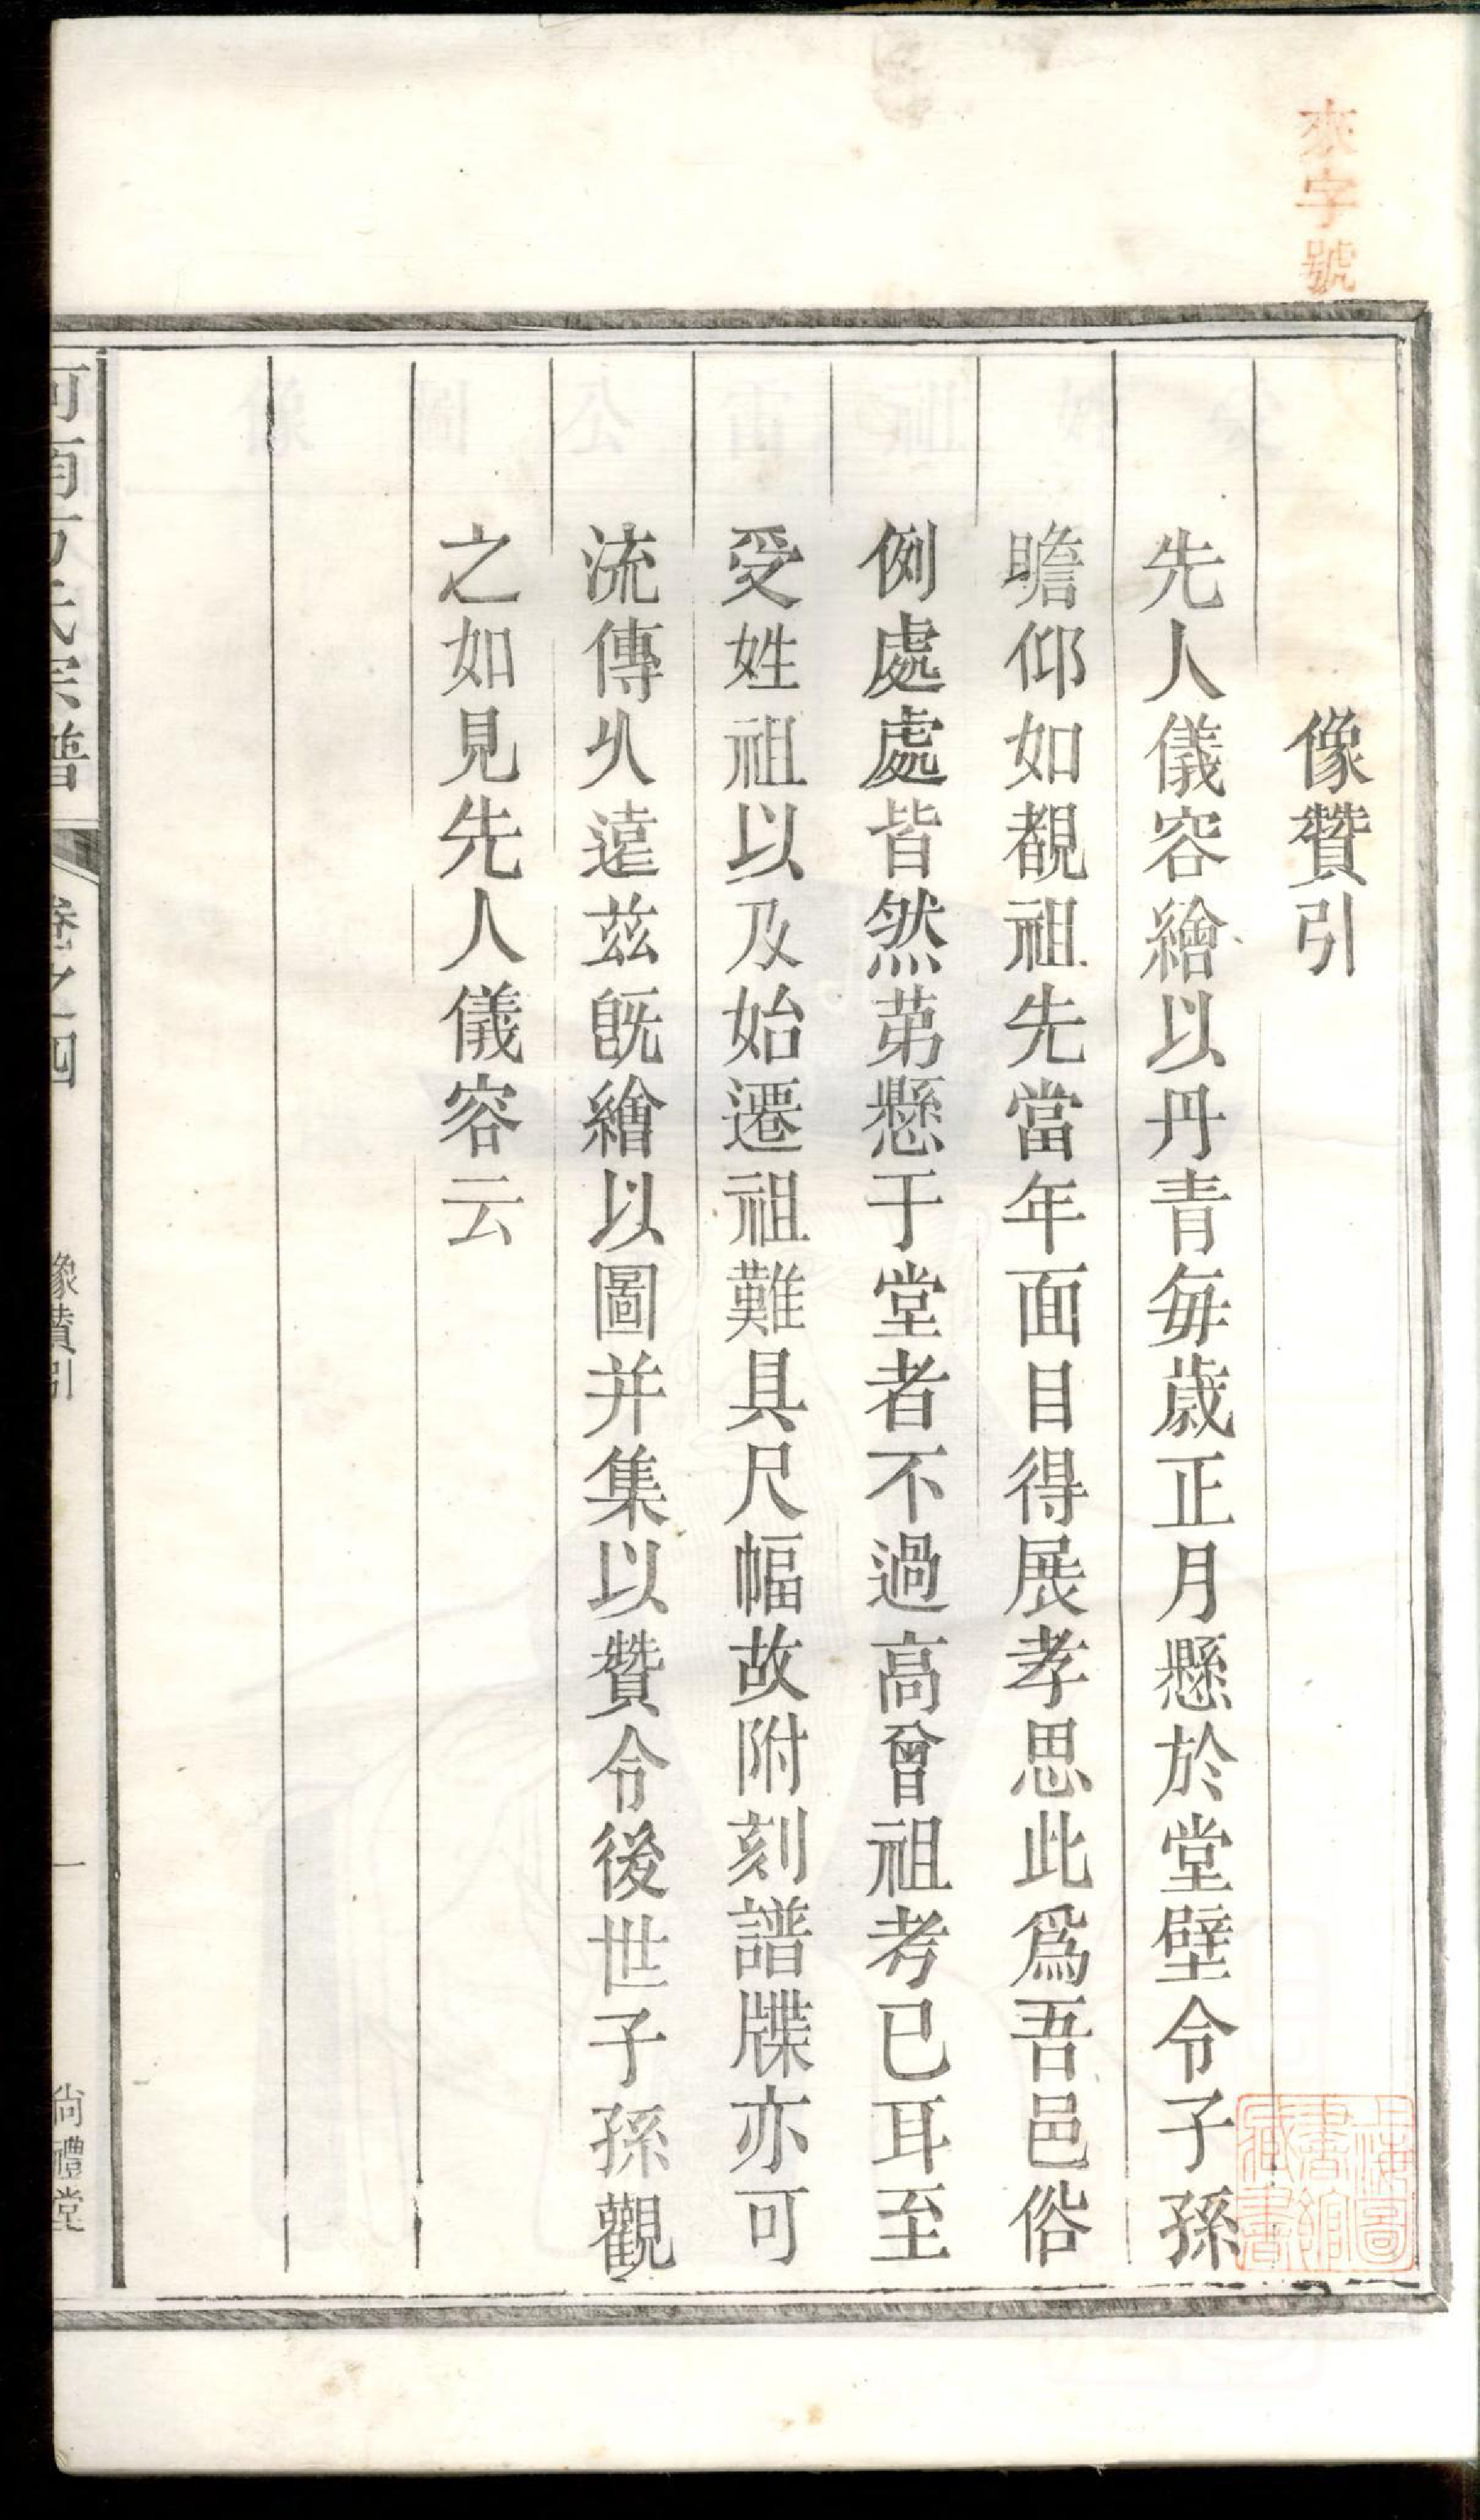 來字號
像贊引
先人儀容繪以丹青每歲正月懸於堂壁令子孫
瞻仰如覩祖先當年面目得展孝思此爲吾邑俗
例處處皆然苐懸于堂者不過高曾祖考已耳至
受姓祖以及始遷祖難具尺幅故附刻譜牒亦可
流傳久遠茲既繪以圖并集以贊令後世子孫觀
之如見先人儀容云
河南方氏宗譜
卷之四
像贊引
一
尚禮堂
上海圖書館藏書